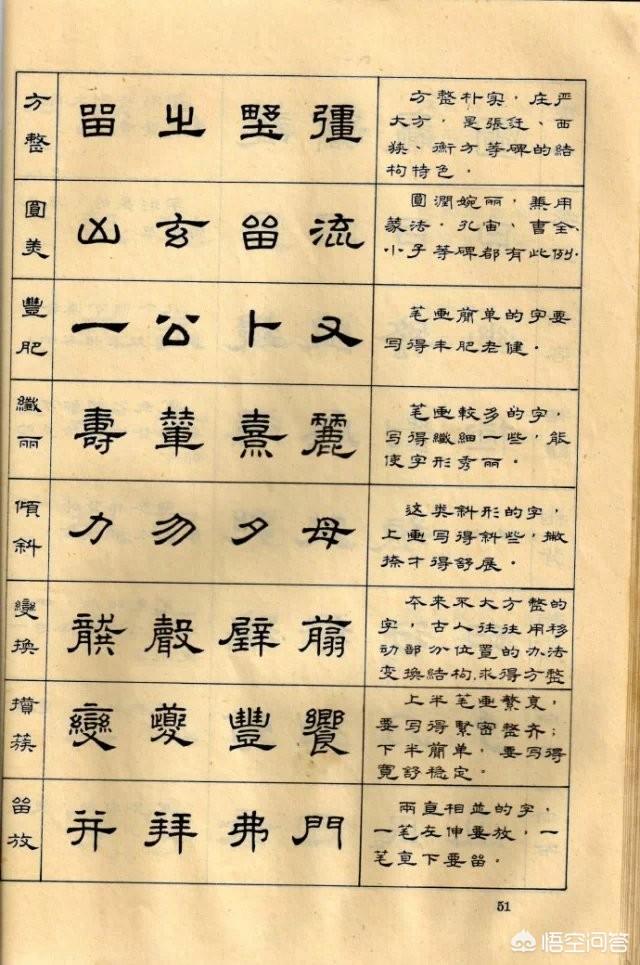 方整
留 之 彊
方整朴实，庄严
大方，是張迁、西
狭、衡方等碑的結
构特色。
圓美
凶 玄 留 流
圓潤婉丽，兼用
篆法，孔宙、曹全、
小子等碑都有此例.
豐肥
一 公 卜 又
笔画簡单的字要
写得丰肥老健.
纖丽
壽 輦 熹 麗
笔画較多的字，
写得纖細一些，能
使字形秀丽.
傾斜
力 勿 夕 母
这类斜形的字，
上画写得斜些，撇
捺才得舒展.
變换
龔 聲 翦
本来不大方整的
字，古人往往用移
动部分位置的办法
变换結构，求得方整
攢蔟
變 夔 豐 饗
上半笔画繁复，
要写得緊密整齐；
下半簡单，要写得
寬舒稳定。
留放
并 拜 弗 門
兩直相並的字，
一笔左伸要放，一
笔直下要留.
51
悟空问答